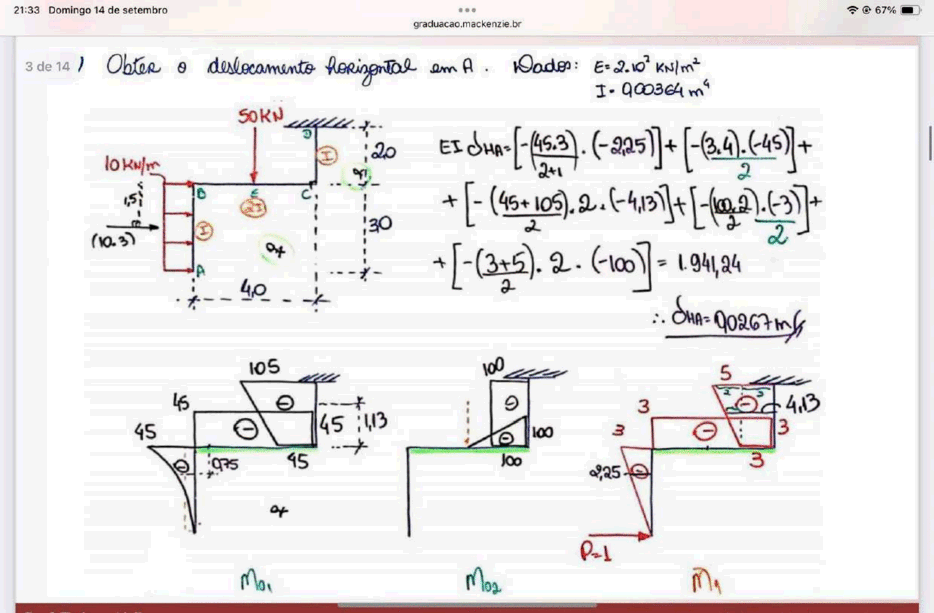 21:33 Domingo 14 de setembro
67%
graduacao.mackenzie.br
3 de 14
) Obter o deslocamento horizontal em A. Dados: E=2.10⁷ KN/m²
I=0,00364 m⁴
50KN
D
I
2,0
10KN/m
B
E
C
2I
1,5
(10.3)
I
3,0
A
4,0
EI δHA=[-(45.3)/(2+1).(-2,25)]+[-(3.4).(-45)/2]+
+[-(45+105)/2.2.(-4,13)]+[-(100.2)/2.(-3)/2]+
+[-(3+5)/2.2.(-100)]=1.941,24
∴ δHA=0,0267m
105
45
45
45
1,13
45
0,75
M01
100
100
100
M02
5
3
3
4,13
3
3
2,25
P=1
M1